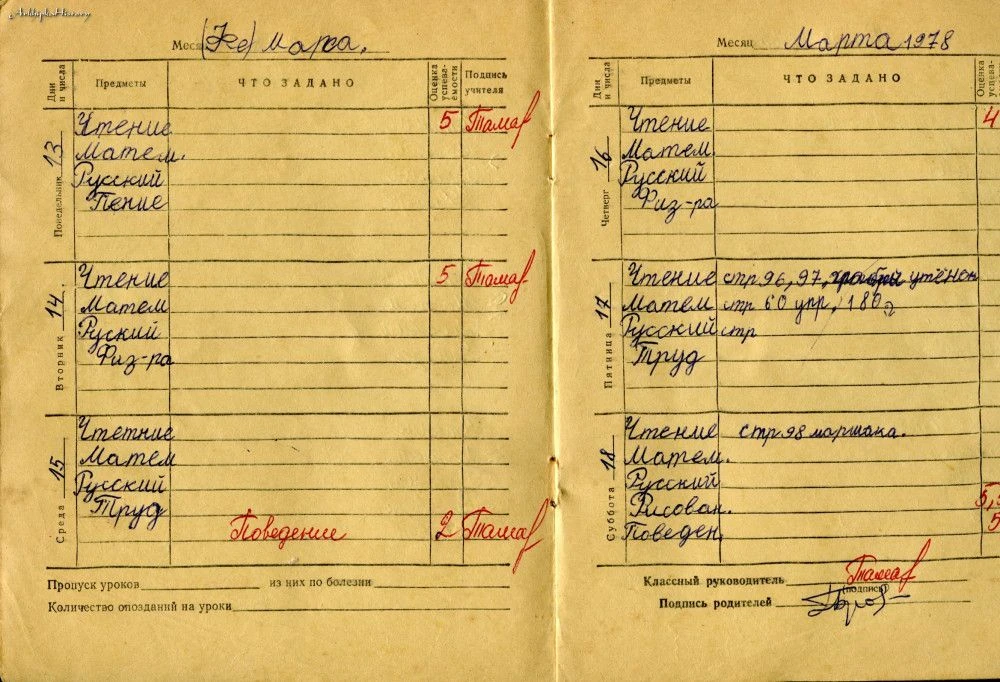 Месяц (Не) Марса.
Дни и числа Предметы ЧТО ЗАДАНО Оценка успеваемости Подпись учителя
Понедельник 13
Чтение 5 Тамаf
Матем.
Русский
Пение
Вторник 14.
Чтение 5
Матем
Руский
Физ-ра
Среда 15
Чтетние
Матем
Русский
Труд
Поведение 2
Пропуск уроков из них по болезни
Количество опозданий на уроки
Месяц Марта 1978
Дни и числа Предметы ЧТО ЗАДАНО Оценка успева-
Четверг 16
Чтение 4
Матем.
Русский
Физ-ра
Пятница 17
Чтение стр 96, 97, утёнок
Матем стр 60 упр, 180
Русский стр
Труд
Суббота 18
Чтение стр 98 маршака.
Матем.
Русский
Рисован. 5,
Поведен. 5
Классный руководитель
(подпись)
Подпись родителей